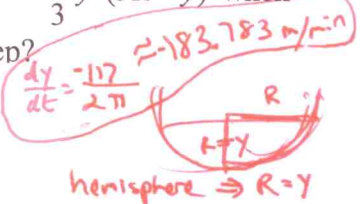 3
ep?
dy/dt = -117/2π ≈ -183.783 m/min
R
R=Y
hemisphere ⇒ R=Y